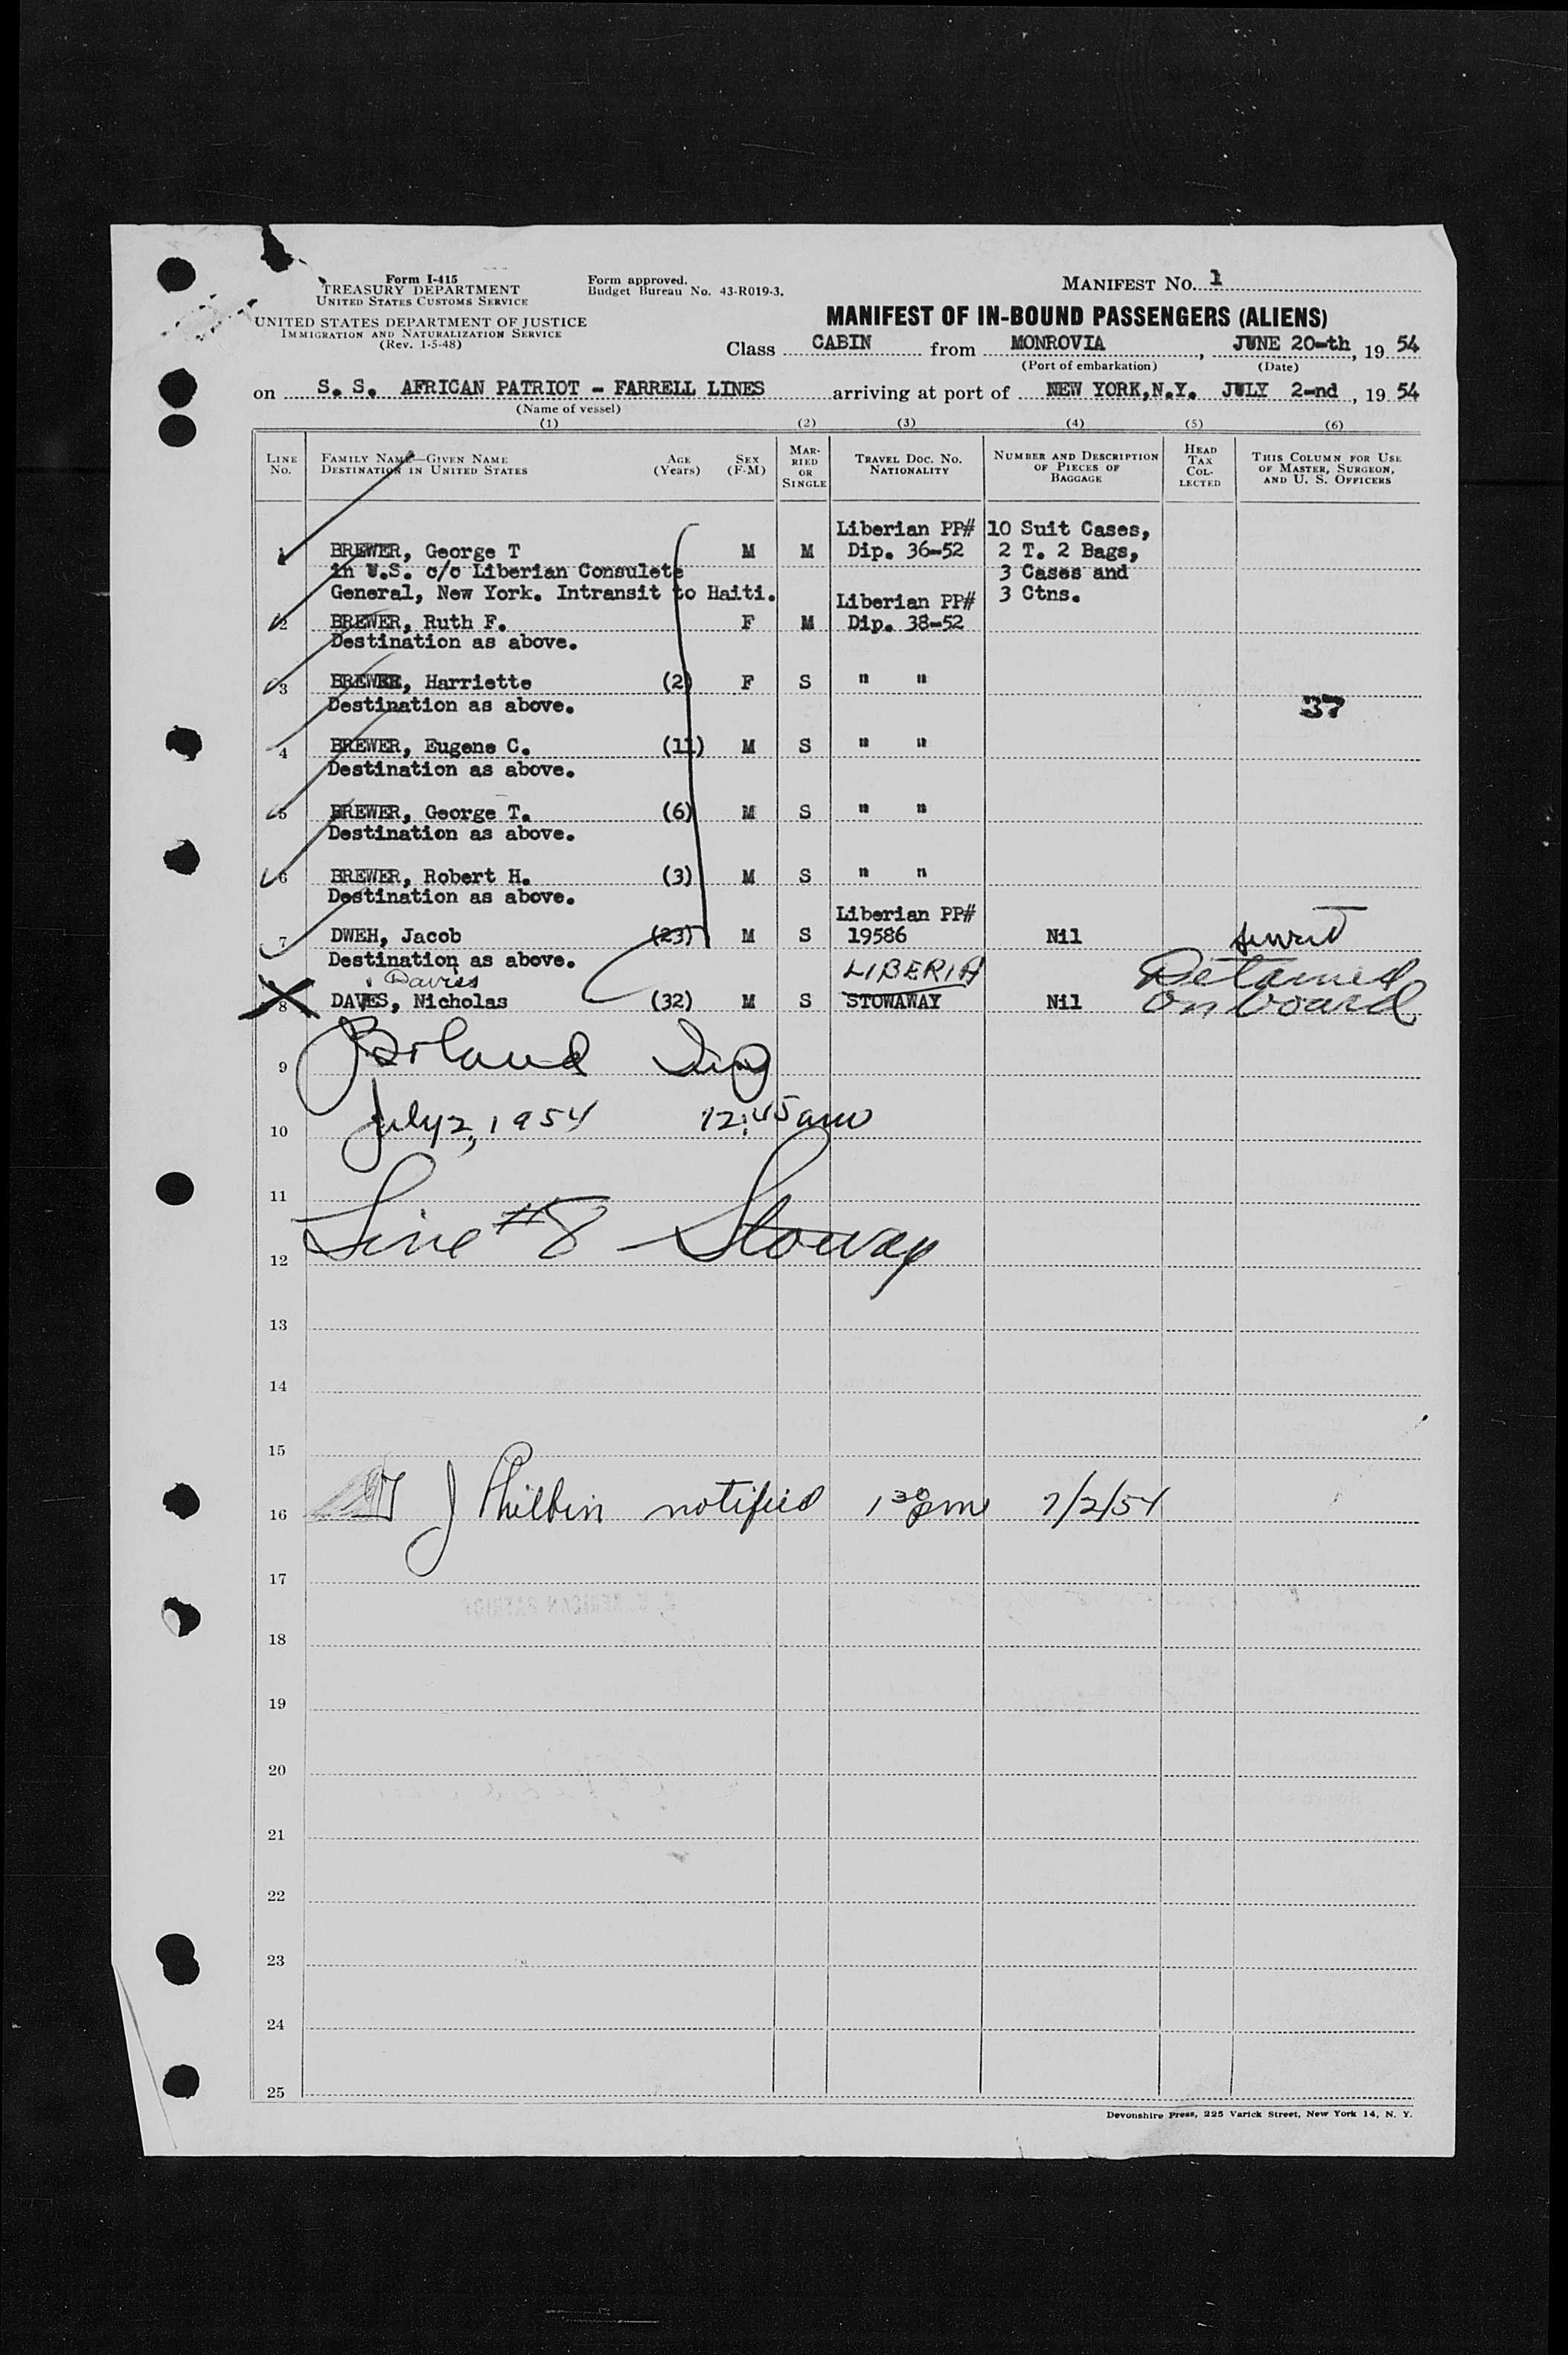 Form I-415
TREASURY DEPARTMENT
UNITED STATES CUSTOMS SERVICE
UNITED STATES DEPARTMENT OF JUSTICE
IMMIGRATION AND NATURALIZATION SERVICE
(Rev. 1-5-48)
Form approved.
Budget Bureau No. 43-R019-3.
MANIFEST NO. 1
MANIFEST OF IN-BOUND PASSENGERS (ALIENS)
Class CABIN from MONROVIA, JUNE 20-th, 19 54
(Port of embarkation) (Date)
on S. S. AFRICAN PATRIOT - FARRELL LINES arriving at port of NEW YORK,N.Y. JULY 2-nd, 19 54
(Name of vessel)
(1) (2) (3) (4) (5) (6)
LINE NO.
FAMILY NAME—GIVEN NAME
DESTINATION IN UNITED STATES
AGE (Years)
SEX (F-M)
MARRIED OR SINGLE
TRAVEL DOC. NO. NATIONALITY
NUMBER AND DESCRIPTION OF PIECES OF BAGGAGE
HEAD TAX COLLECTED
THIS COLUMN FOR USE OF MASTER, SURGEON, AND U. S. OFFICERS
Liberian PP# 10 Suit Cases,
1 BREWER, George T M M Dip. 36-52 2 T. 2 Bags,
in U.S. c/o Liberian Consulete 3 Cases and
General, New York. Intransit to Haiti. 3 Ctns.
Liberian PP#
2 BREWER, Ruth F. F M Dip. 38-52
Destination as above.
3 BREWER, Harriette (2) F S " "
Destination as above.
37
4 BREWER, Eugene C. (11) M S " "
Destination as above.
5 BREWER, George T. (6) M S " "
Destination as above.
6 BREWER, Robert H. (3) M S " "
Destination as above.
Liberian PP#
7 DWEH, Jacob (23) M S 19586 Nil
Destination as above.
Davies LIBERIA Detained
8 DAVES, Nicholas (32) M S STOWAWAY Nil on board
9
July 2, 1954 12:45 am
10
11
Line #8 - Stoway
12
13
14
15
16 T J Philbin notified 1 30 pm 7/2/54
17
18
19
20
21
22
23
24
25
Devonshire Press, 225 Varick Street, New York 14, N. Y.